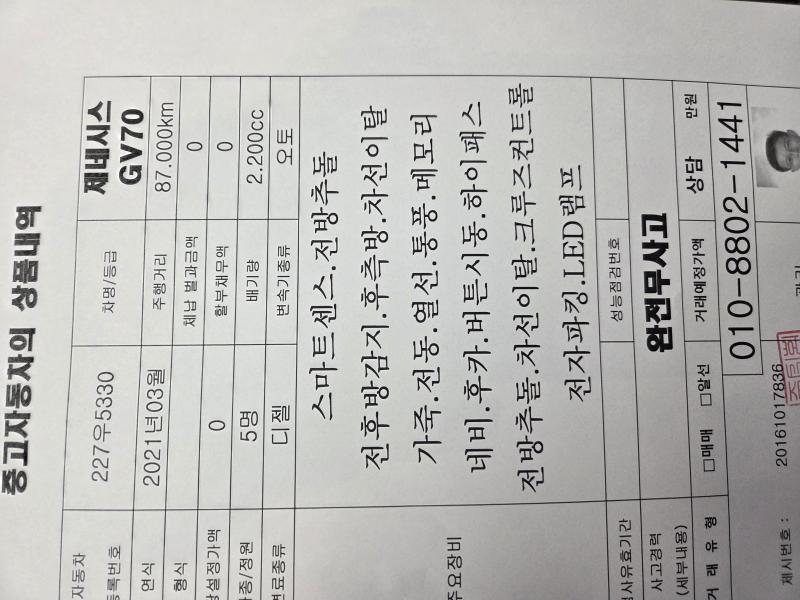 중고자동차의 상품내역
자동차 227우5330 차명/등급 제네시스
등록번호 GV70
연식 2021년03월 주행거리 87.000km
형식 체납 벌과금액 0
당설정가액 0 할부채무액 0
차종/정원 5명 배기량 2.200cc
연료종류 디젤 변속기종류 오토
주요장비
스마트센스.전방추돌
전후방감지.후측방.차선이탈
가죽.전동.열선.통풍.메모리
네비.후카.버튼시동.하이패스
전방추돌.차선이탈.크루즈컨트롤
전자파킹.LED램프
검사유효기간 성능점검번호
사고경력 완전무사고
(세부내용)
거 래 유 형 □매매 □알선 거래예정가액 상담 만원
010-8802-1441
제시번호 : 20161017836